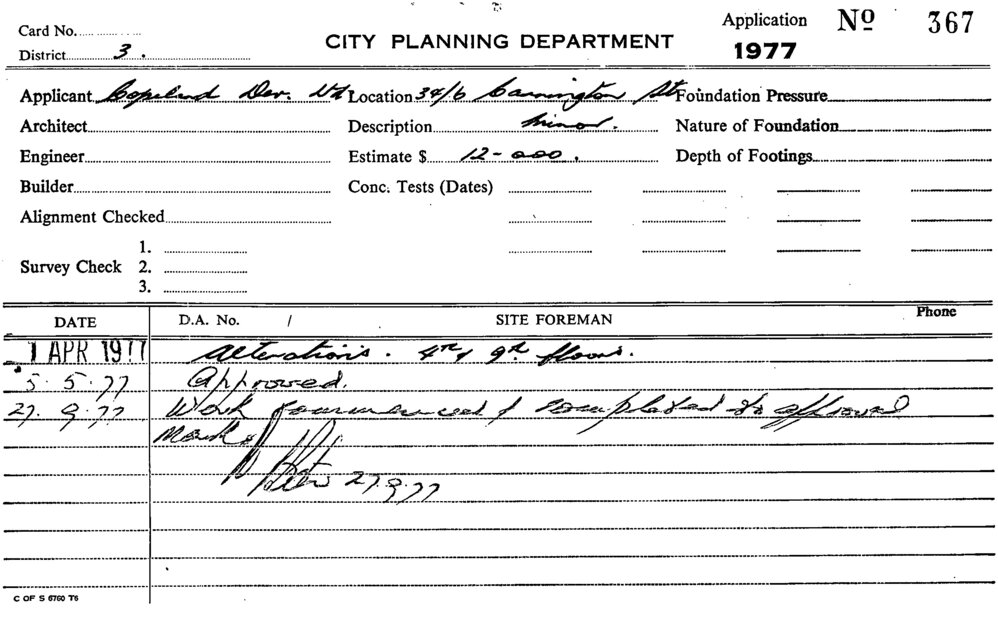 Card No. Application Nº 367
District 3. CITY PLANNING DEPARTMENT 1977
Applicant Copeland Dev. Location 34/6 Carrington St Foundation Pressure
Architect Description Minor. Nature of Foundation
Engineer Estimate $ 12-000. Depth of Footings
Builder Conc. Tests (Dates)
Alignment Checked
1.
Survey Check 2.
3.
DATE D.A. No. / SITE FOREMAN Phone
1 APR 1977 Alterations. 4th & 9th floors.
5.5.77 Approved.
27.9.77 Work commenced & completed to approval
27.9.77
C OF S 6760 T6